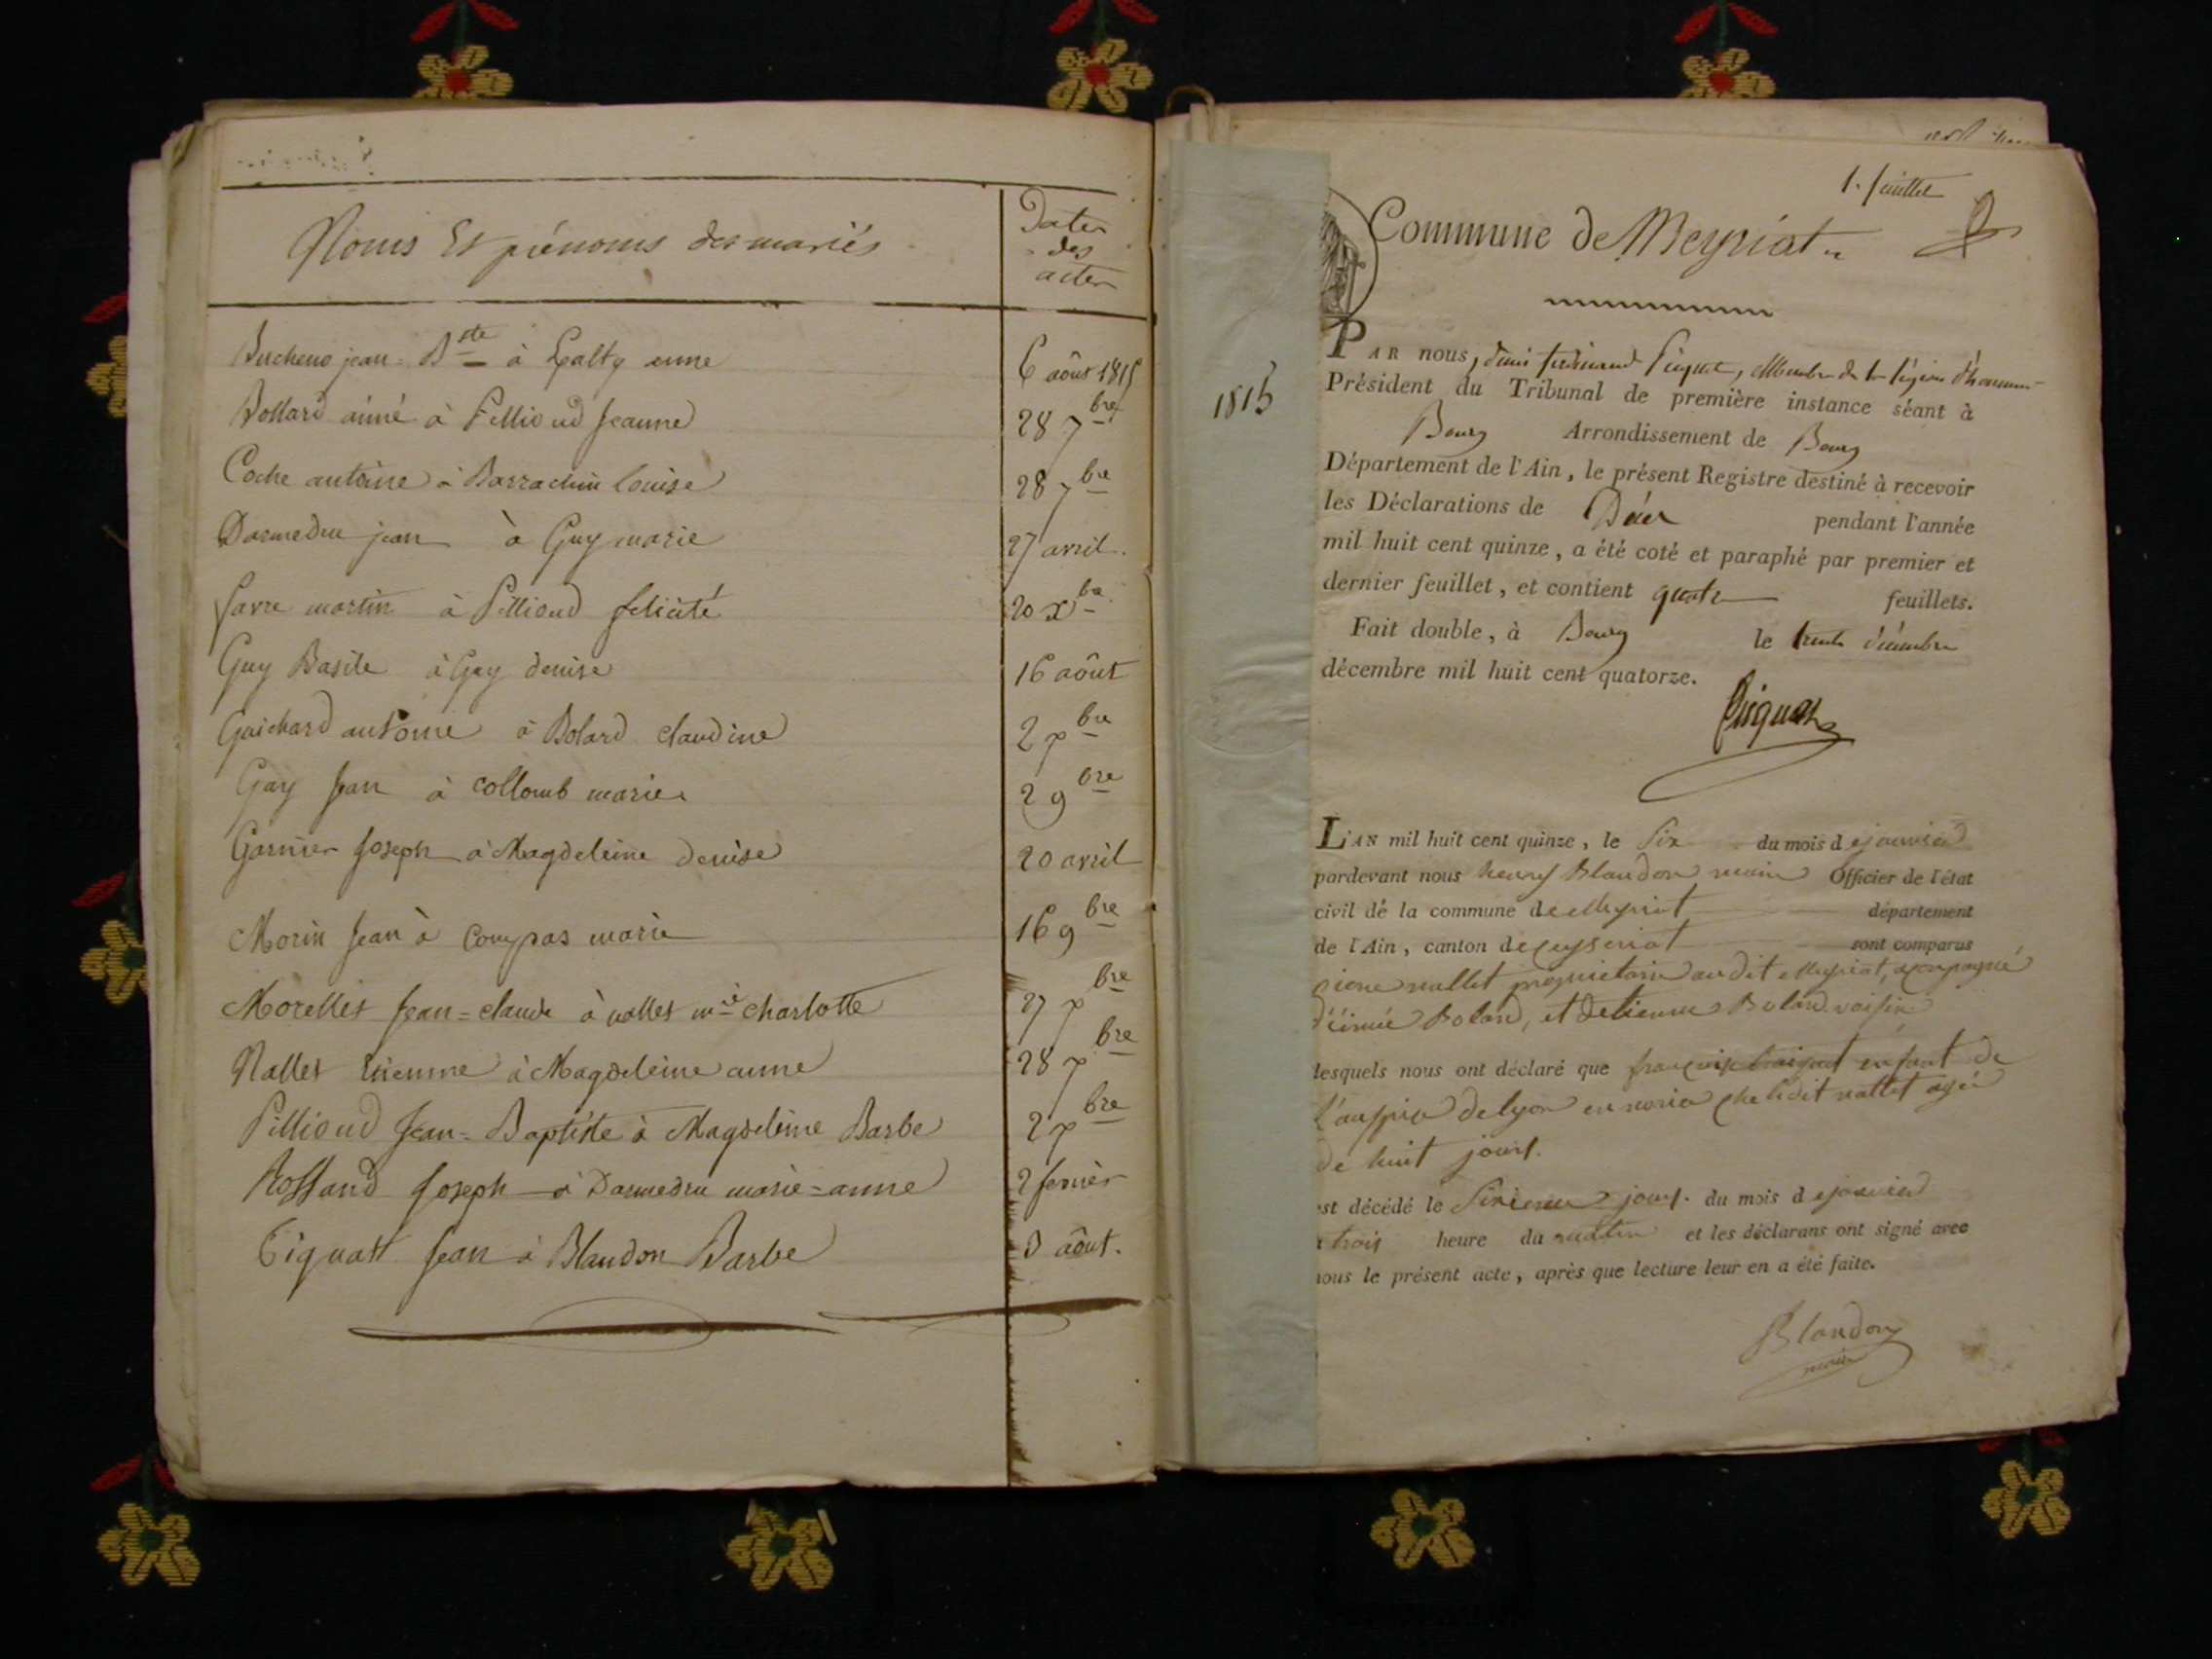 Noms Et prénoms des mariés
Dates
des
actes
Bucheno jean = Bste à Galty anne 6 aôut 1815
Bollard aimé à Pellioud Jeanne 28 7bre
Coche antoine à Barrachin louise 28 7bre
Darmedru jean à Guy marie 27 avril.
favre martin à Pillioud felicité 20 xbre
Guy Basile à Gay denise 16 aôut
Guichard antoine à Bolard claudine 2 7bre
Gay Jean à collomb marie 2 9bre
Garnier Joseph à Magdeleine denise 20 avril
Morin Jean à Compas marie 16 9bre
Morellet Jean = claude à nallet mie charlotte 27 7bre
Nallet Etienne à Magdeleine anne 28 7bre
Pillioud Jean = Baptiste à Magdeleine Barbe 2 7bre
Rolland Joseph à Darmedru marie = anne 2 fevrier
Tiquast Jean à Blandon Barbe 3 aôut.
1815
1. feuillet
Commune de Meyriat
PAR nous, denis ferdinand Piquet, Membre de la légion d'honneur
Président du Tribunal de première instance séant à
Bourg Arrondissement de Bourg
Département de l'Ain, le présent Registre destiné à recevoir
les Déclarations de Décès pendant l'année
mil huit cent quinze, a été coté et paraphé par premier et
dernier feuillet, et contient quatre feuillets.
Fait double, à Bourg le trente décembre
décembre mil huit cent quatorze.
Piquet
L'AN mil huit cent quinze, le Six du mois de janvier
pardevant nous henry Blandon maire Officier de l'état
civil de la commune de Meyriat département
de l'Ain, canton de ceyseriat sont comparus
piere nallet proprietaire au dit Meyriat, acompagné
d'éimé Bolard, et detienne Bolard voisin
lesquels nous ont déclaré que françois enfant de
l'auspice de lyon en norice che ledit nallet agée
de huit jours.
est décédé le Sixieme jours. du mois de janvier
a trois heure du matin et les déclarans ont signé avec
nous le présent acte, après que lecture leur en a été faite.
Blandon
maire